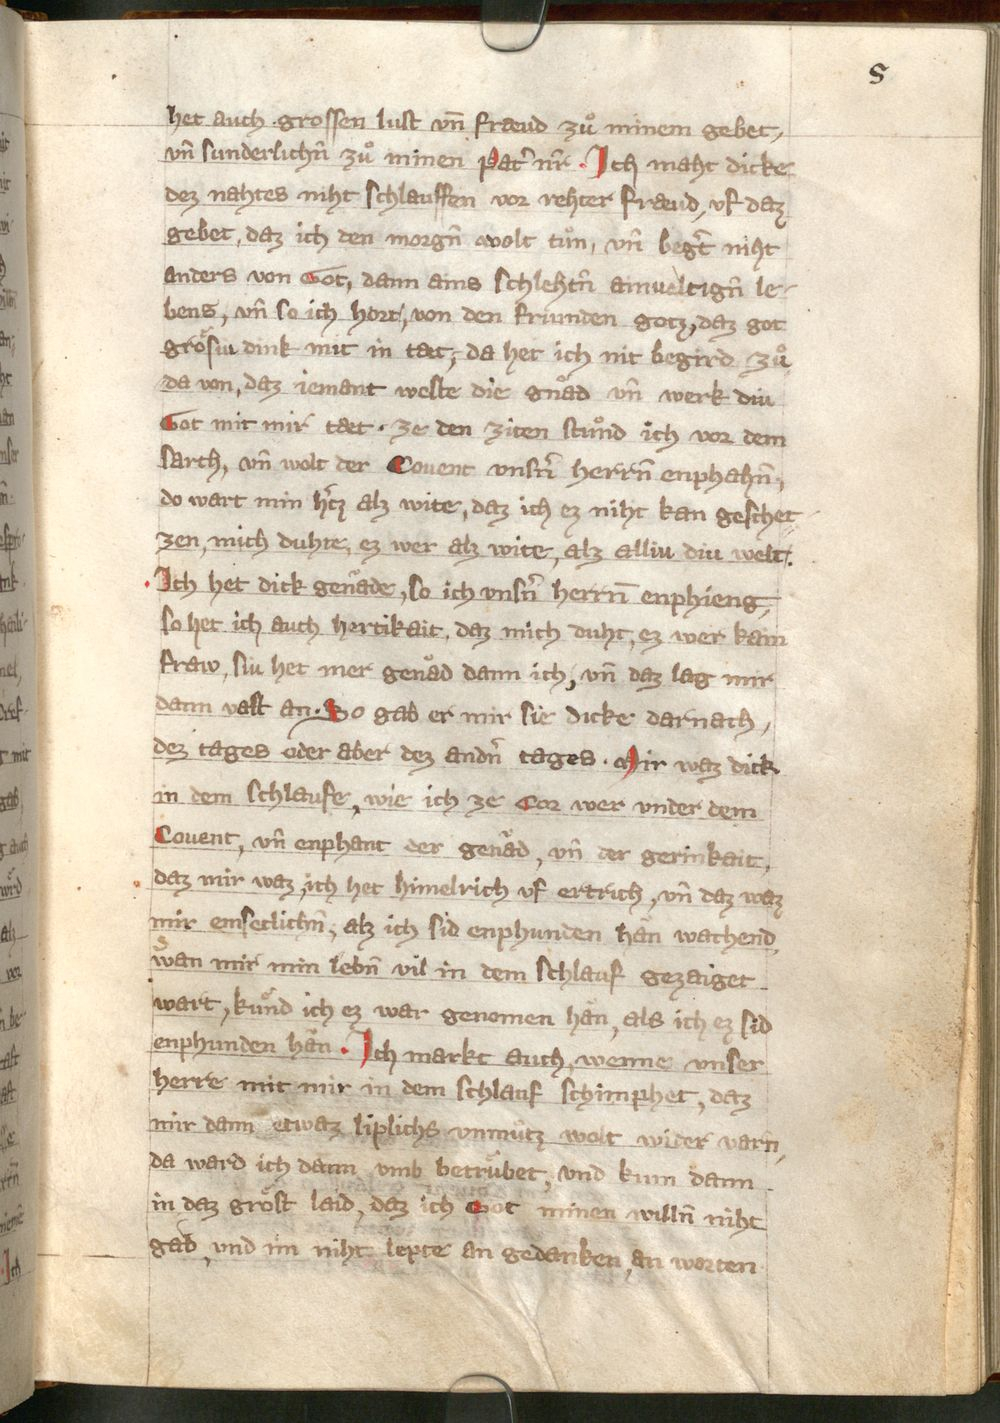 5
het auch grossen lust vn̄ fraeud zuͦ minem gebet,
vn̄ sunderlichn̄ zuͦ minen Pat͛ nr̄. Ich maht dicke
dez nahtes niht schlauffen vor rehter fraeud, vf daz
gebet, daz ich den morgn̄ wolt tuͦn, vn̄ beg͛t niht
anders von Got, dann ains schlehtn̄ ainueltign̄ le-
bens, vn̄ so ich hort, von den friunden gotz, daz got
groͤsiu dink mit in taet, da het ich nit begird zuͦ
da von, daz iemant weste die gnaͧd vn̄ werk diu
Got mit mir taet. ze den ziten stuͦnd ich vor dem
sarch, vn̄ wolt der Couent vnsn͛ herrn̄ enphahn̄,
do wart min h͛tz alz wite, daz ich ez niht kan geschet-
zen, mich duhte, ez wer alz wite, alz alliu diu welt.
Ich het dick genaͧde, so ich vnsn͛ herrn̄ enphieng,
so het ich auch hertikait, daz mich duht, ez wer kain
fraw, siu het mer genaͧd dann ich, vn̄ daz lag mir
dann vast an. So gab er mir sie dicke darnach,
dez tages oder aber dez andn͛ tages. Mir waz dick
in dem schlaufe, wie ich ze Cor wer vnder dem
Couent, vn̄ enphant der genaͧd, vn̄ der gerinkait,
daz mir waz, ich het himelrich vf ertrich, vn̄ daz waz
mir emseclichn̄, alz ich sid enphunden haͧn wachend,
wan mir min lebn̄ vil in dem schlauf gezaiget
wart, kuͤnd ich ez war genomen haͧn, als ich ez sid
enphunden haͧn. Ich markt auch, wenne vnser
herre mit mir in dem schlauf schimphet, daz
mir dann etwaz liplichs vnnuͤtz wolt wider varn,
da ward ich dann vmb betruͤbet, vnd kum dann
in daz groͤst laid, daz ich Got minen willn̄ niht
gab, vnd im niht lepte an gedanken, an worten